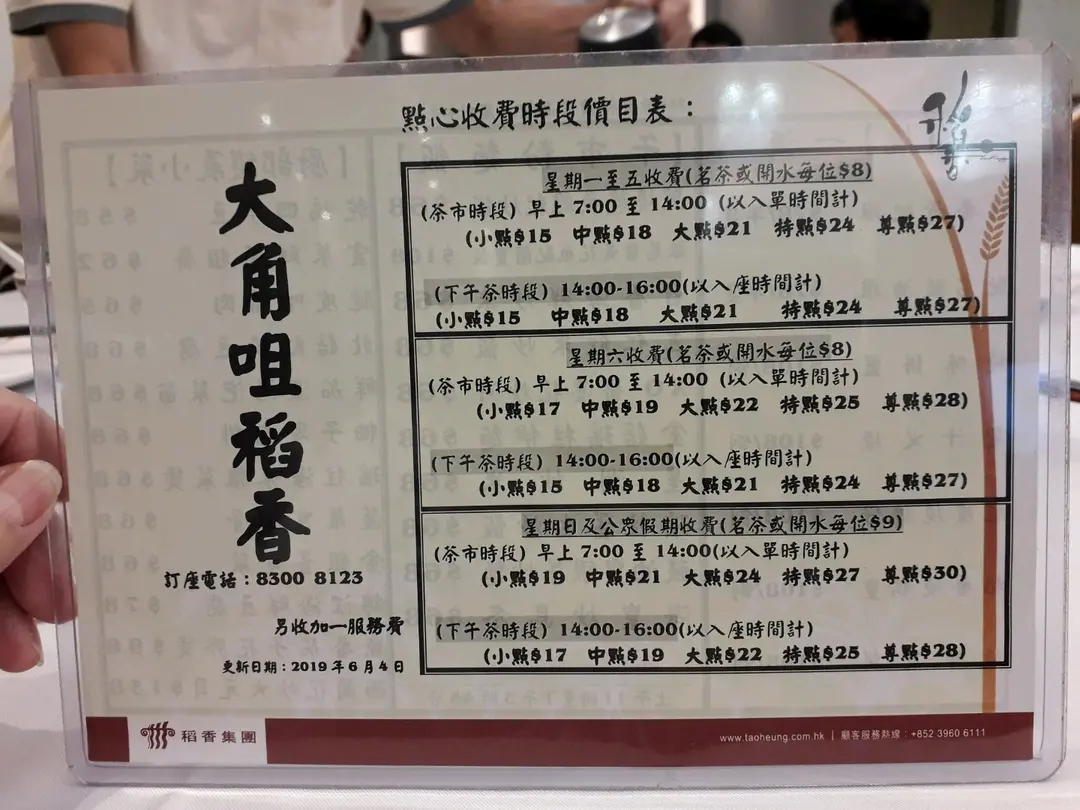 點心收費時段價目表：
大角咀稻香
訂座電話：8300 8123
另收加一服務費
更新日期：2019年6月4日
星期一至五收費(茗茶或開水每位$8)
(茶市時段) 早上 7:00 至 14:00 (以入單時間計)
(小點$15 中點$18 大點$21 特點$24 尊點$27)
(下午茶時段) 14:00-16:00(以入座時間計)
(小點$15 中點$18 大點$21 特點$24 尊點$27)
星期六收費(茗茶或開水每位$8)
(茶市時段) 早上 7:00 至 14:00 (以入單時間計)
(小點$17 中點$19 大點$22 特點$25 尊點$28)
(下午茶時段) 14:00-16:00(以入座時間計)
(小點$15 中點$18 大點$21 特點$24 尊點$27)
星期日及公眾假期收費(茗茶或開水每位$9)
(茶市時段) 早上 7:00 至 14:00(以入單時間計)
(小點$19 中點$21 大點$24 特點$27 尊點$30)
(下午茶時段) 14:00-16:00(以入座時間計)
(小點$17 中點$19 大點$22 特點$25 尊點$28)
稻香集團
www.taoheung.com.hk | 顧客服務熱線：+852 3960 6111